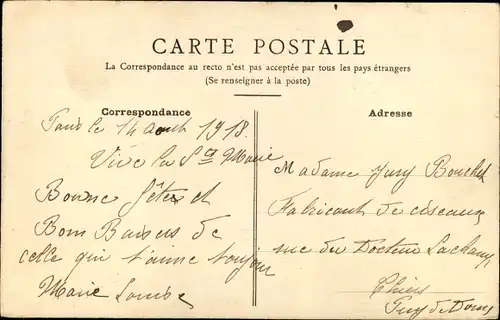 CARTE POSTALE
La Correspondance au recto n'est pas acceptée par tous les pays étrangers
(Se renseigner à la poste)
Correspondance
le 14 aout 1918.
Vive la Ste Marie
Bonne fête et
Bons Baisers de
celle qui t'aime toujour
Marie
Adresse
Madame Bouchet
Fabricant de ciseaux
rue du Docteur Lachamp
Thiers
Puy de Dome